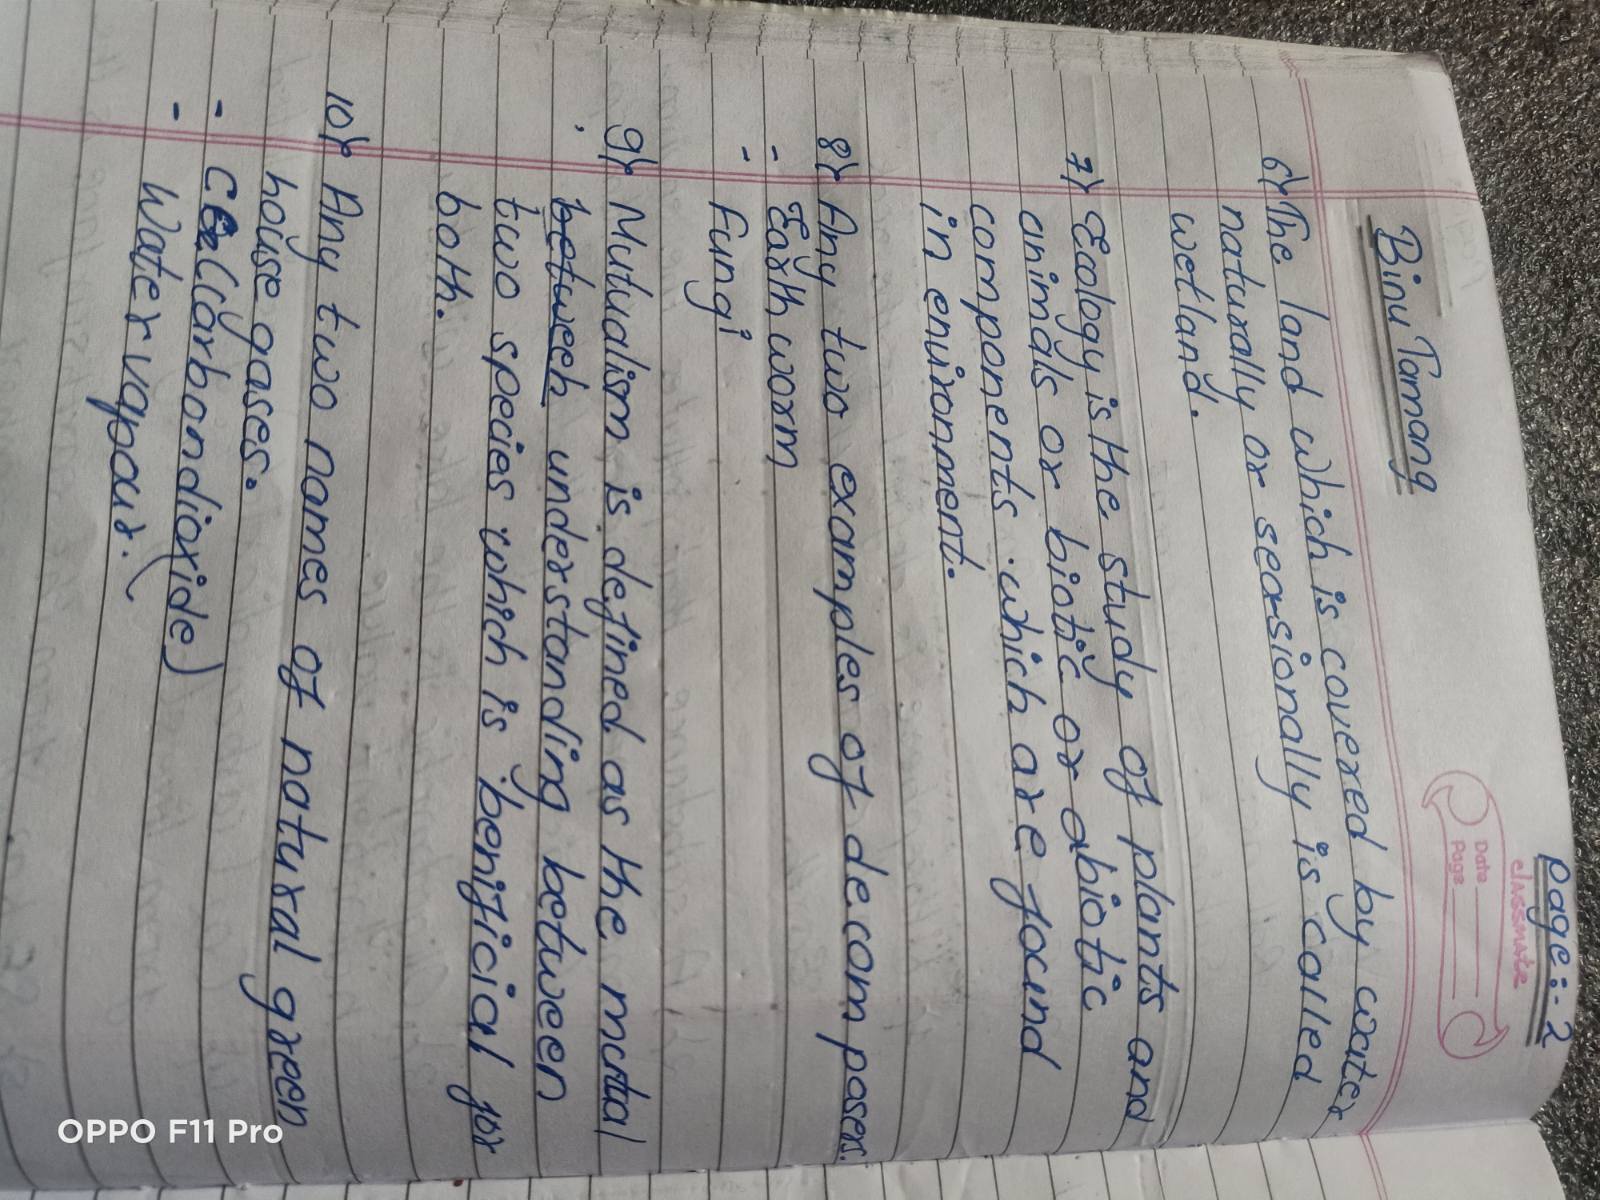 Page:- 2
classmate
Date
Page
Binu Tamang
6) The land which is covered by water
naturally or seasionally is called
wetland.
7) Ecology is the study of plants and
animals or biotic or abiotic
components which are found
in environment.
8) Any two examples of decomposer.
- Earthworm
- Fungi
9) Mutualism is defined as the mutal
between understanding between
two species which is benificial for
both.
10) Any two names of natural green
house gases.
- (Carbondioxide)
- Water vapour.
OPPO F11 Pro